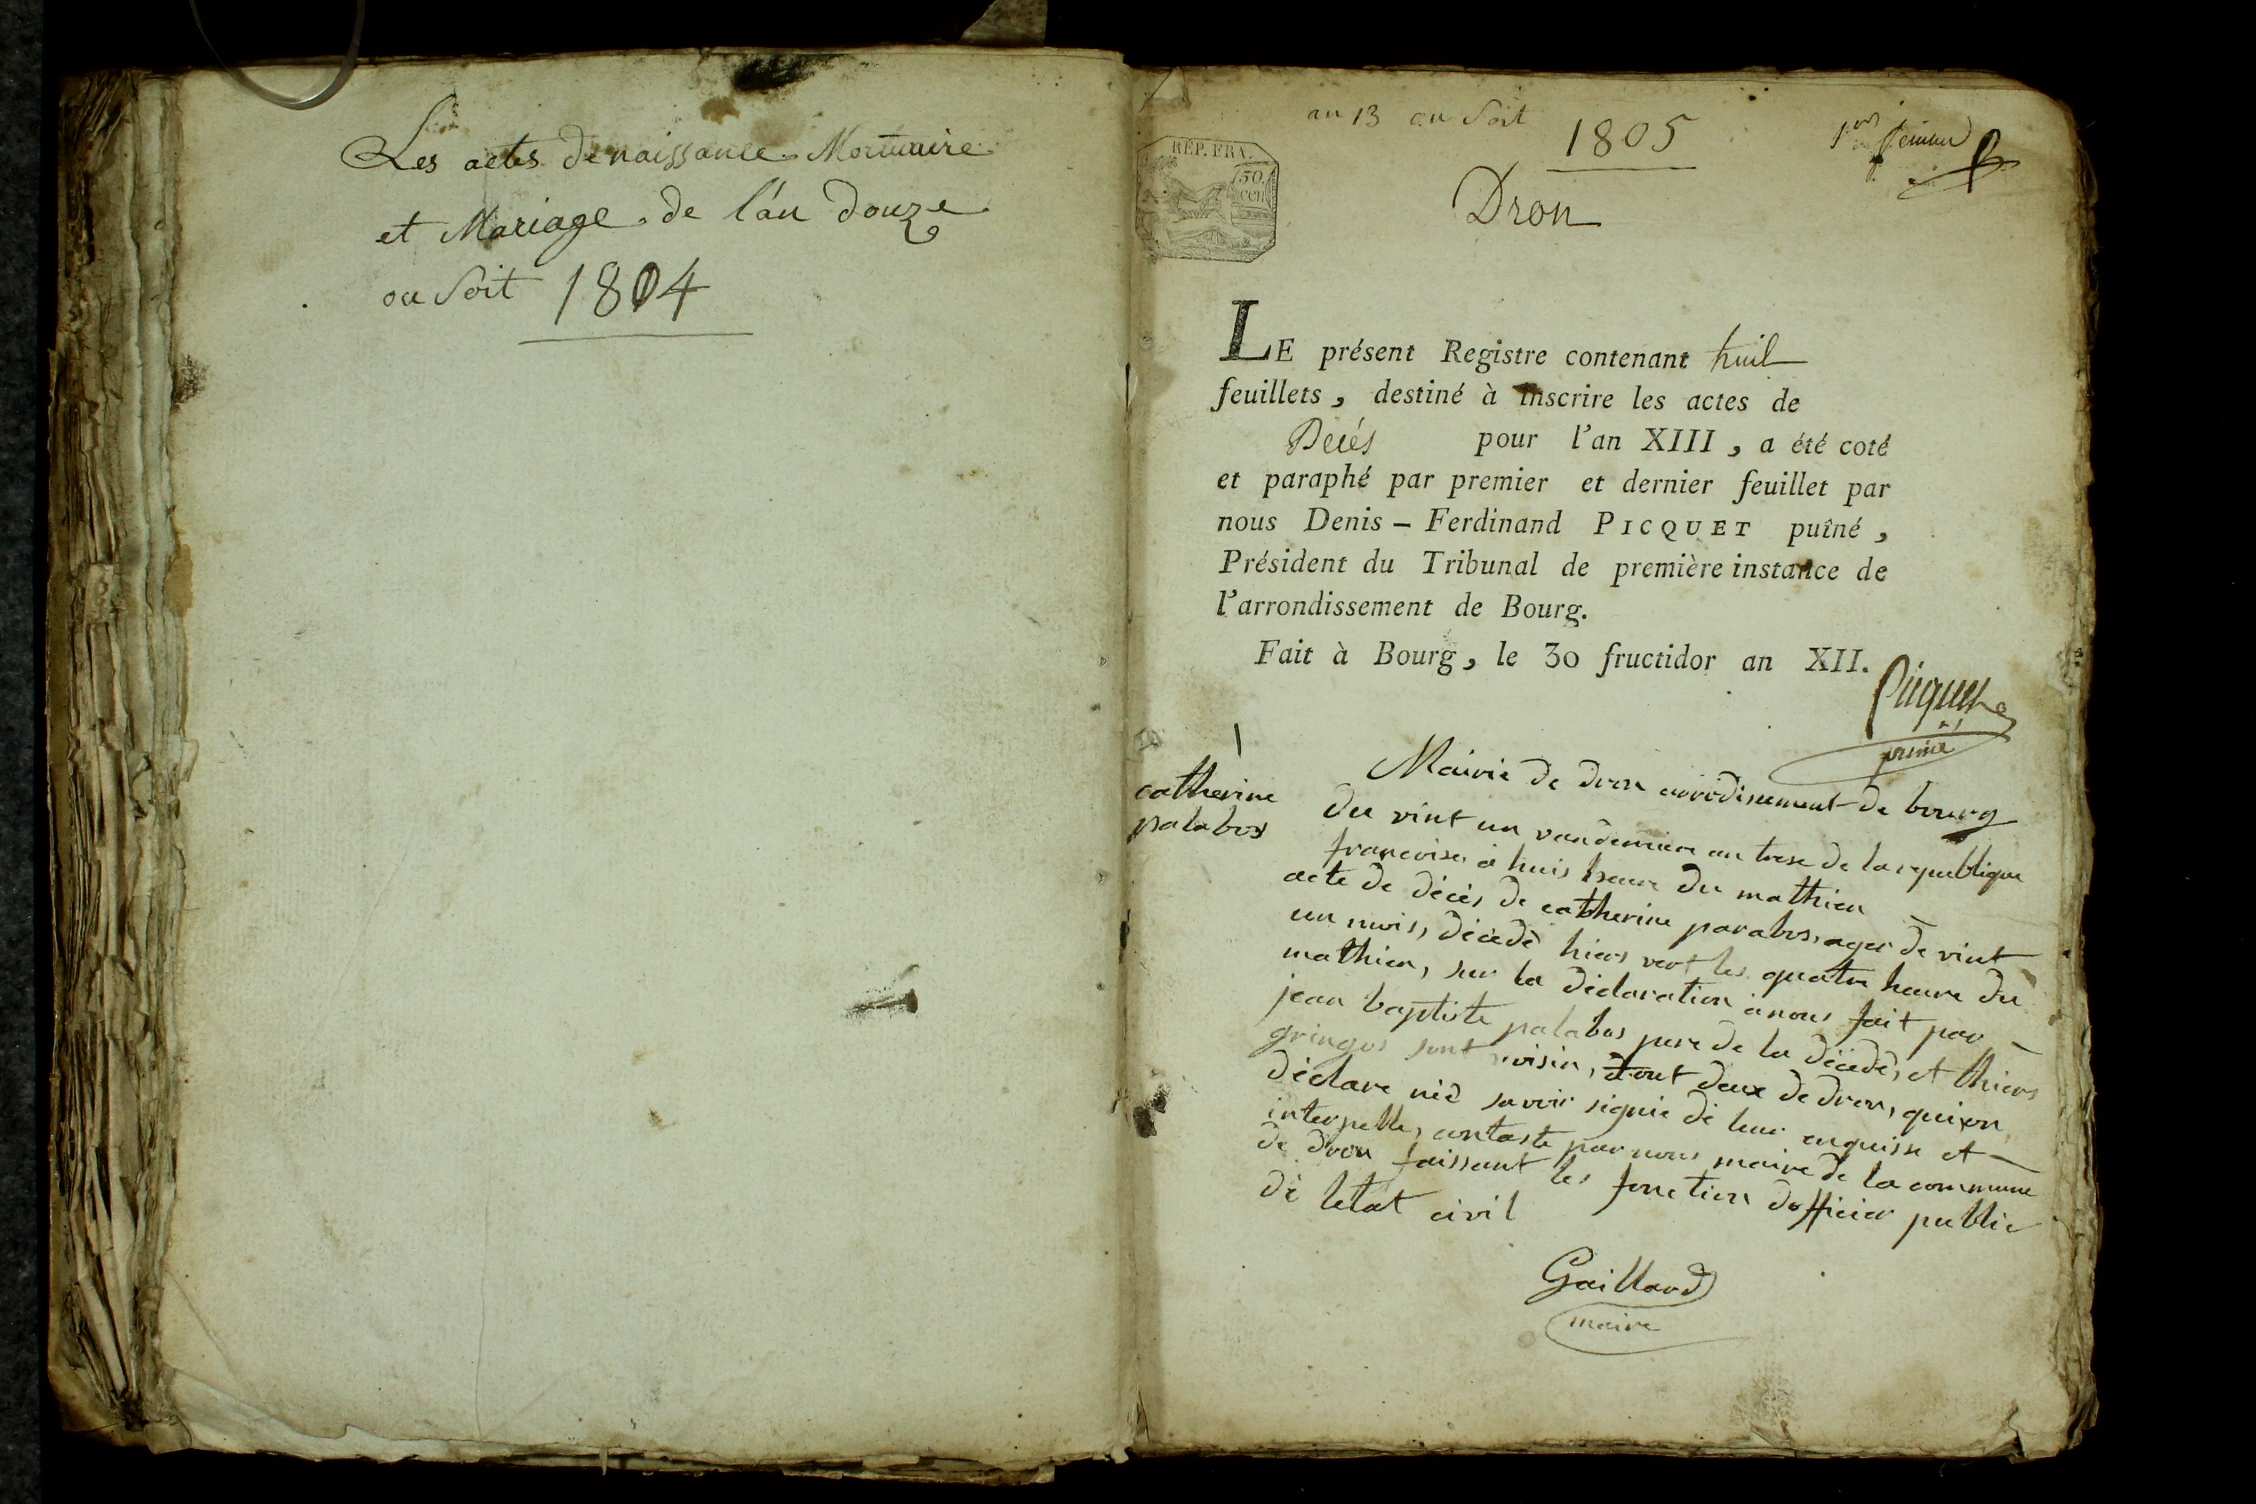 Les actes de naissance Mortuaire
et Mariage de l'an douze
ou Soit 1804
an 13 ou Soit 1805
1er feuillet
RÉP. FRA.
50 cen
Dron
LE présent Registre contenant huit
feuillets, destiné à inscrire les actes de
Decés pour l'an XIII, a été coté
et paraphé par premier et dernier feuillet par
nous Denis-Ferdinand PICQUET puîné,
Président du Tribunal de première instance de
l'arrondissement de Bourg.
Fait à Bourg, le 30 fructidor an XII.
Picquet
puiné
1
catherine
palabos
Mairie de dron arrodisement de bourg
du vint un vandemiere an trese de la republique
francoise, à huis heure du mathien
acte de décès de catherine parabos, ager de vint
un mois, décedé hiers vert les quatre heure du
mathien, sur la déclaration anous fait par
jean baptiste palabos pere de la décedé, et thiers
gringos sont voisin, tout deux de dron, qui on
déclare né savoir signie dé leur enquisse et
interpelle, contaste par nous maire de la commune
de dron faissant les fonction dofficier public
dé letat civil
Gaillard
maire